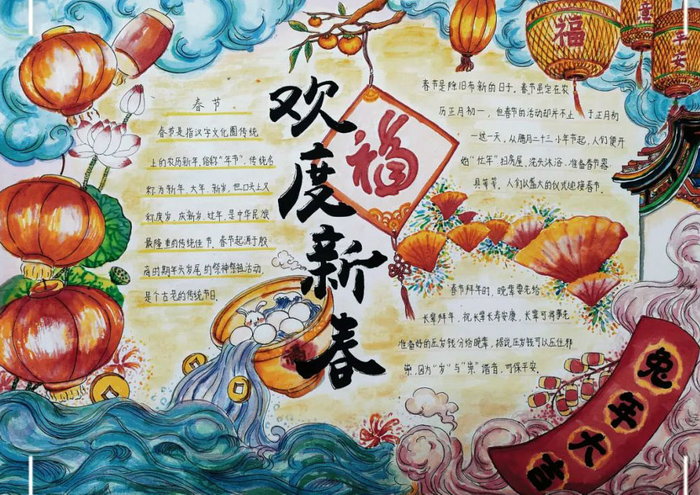 欢度新春
福
福
平安
兔年大吉
春节
春节是指汉字文化圈传统
上的农历新年,俗称“年节”,传统名
称为新年、大年、新岁,但口头上又
称度岁、庆新岁、过年,是中华民族
最隆重的传统佳节。春节起源于殷
商时期年头岁尾的祭神祭祖活动,
是个古老的传统节日。
春节是除旧布新的日子,春节虽定在农
历正月初一,但春节的活动却并不止于正月初
一这一天,从腊月二十三小年节起,人们便开
始“忙年”:扫房屋、洗头沐浴、准备春节器
具等等,人们以盛大的仪式迎接春节。
春节拜年时,晚辈要先给
长辈拜年,祝长辈长寿安康,长辈可将事先
准备好的压岁钱分给晚辈,据说压岁钱可以压住邪
祟,因为“岁”与“祟”谐音,可保平安。